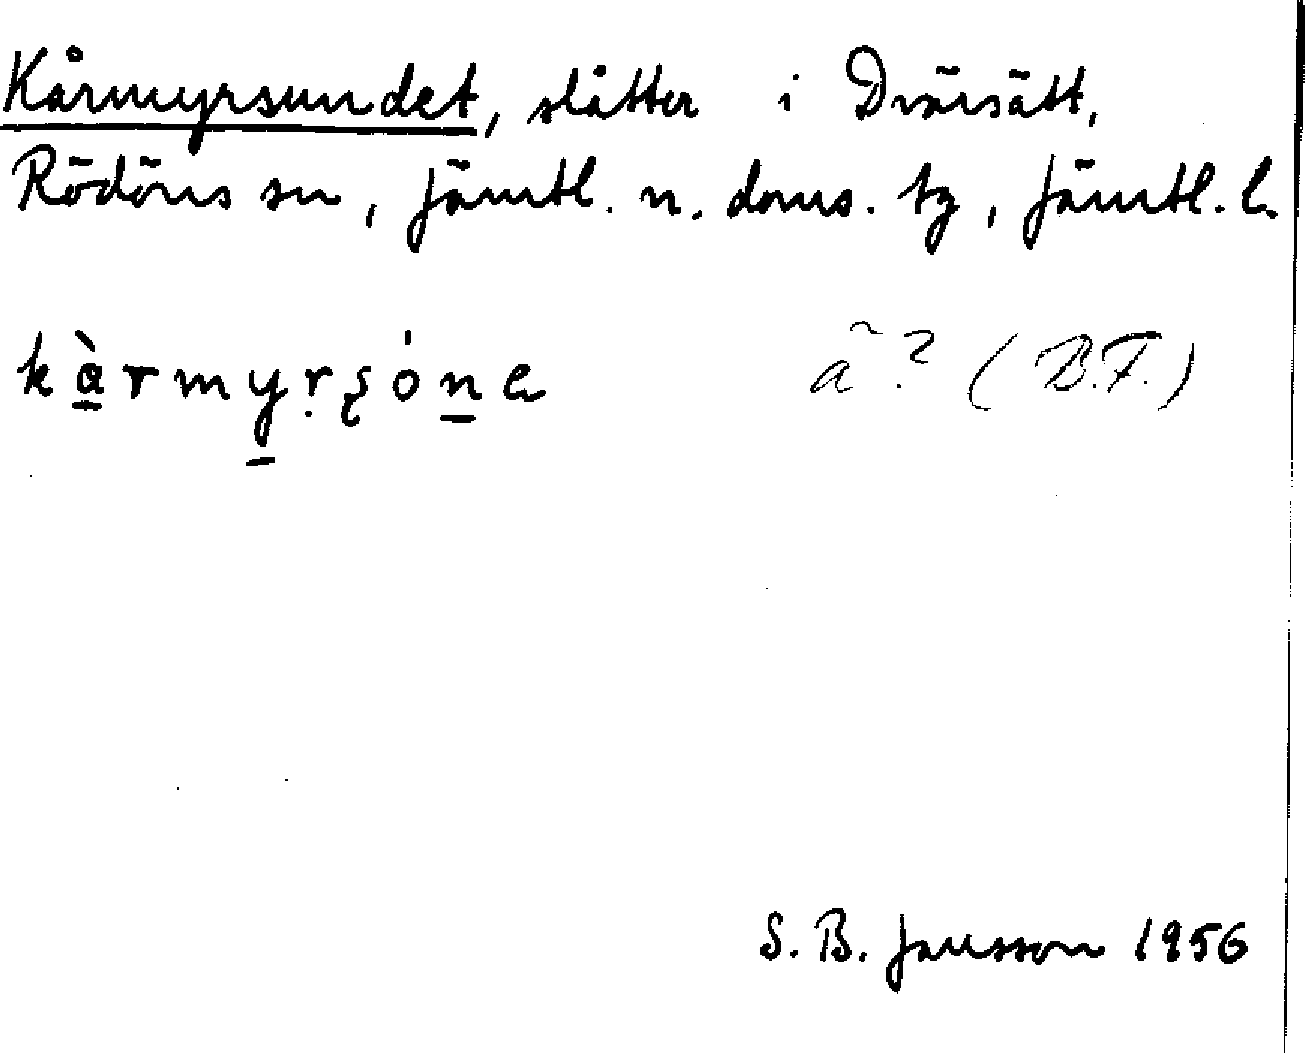 Kårmyrsundet, slåtter i Dvärsätt,
Rödöns sn, Jämtl. n. doms. tg, Jämtl. l.
kà̱rmy̱ṛşóṉe ã? (B.F.)
S. B. Jansson 1956